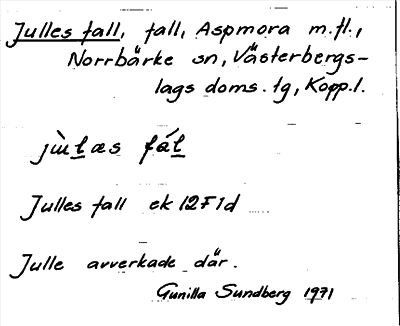 Julles fall, fall, Aspmora m.fl.,
Norrbärke sn, Västerbergs-
lags doms. tg, Kopp. l.
Julles fall ek 12F1d
Julle avverkade där.
Gunilla Sundberg 1971